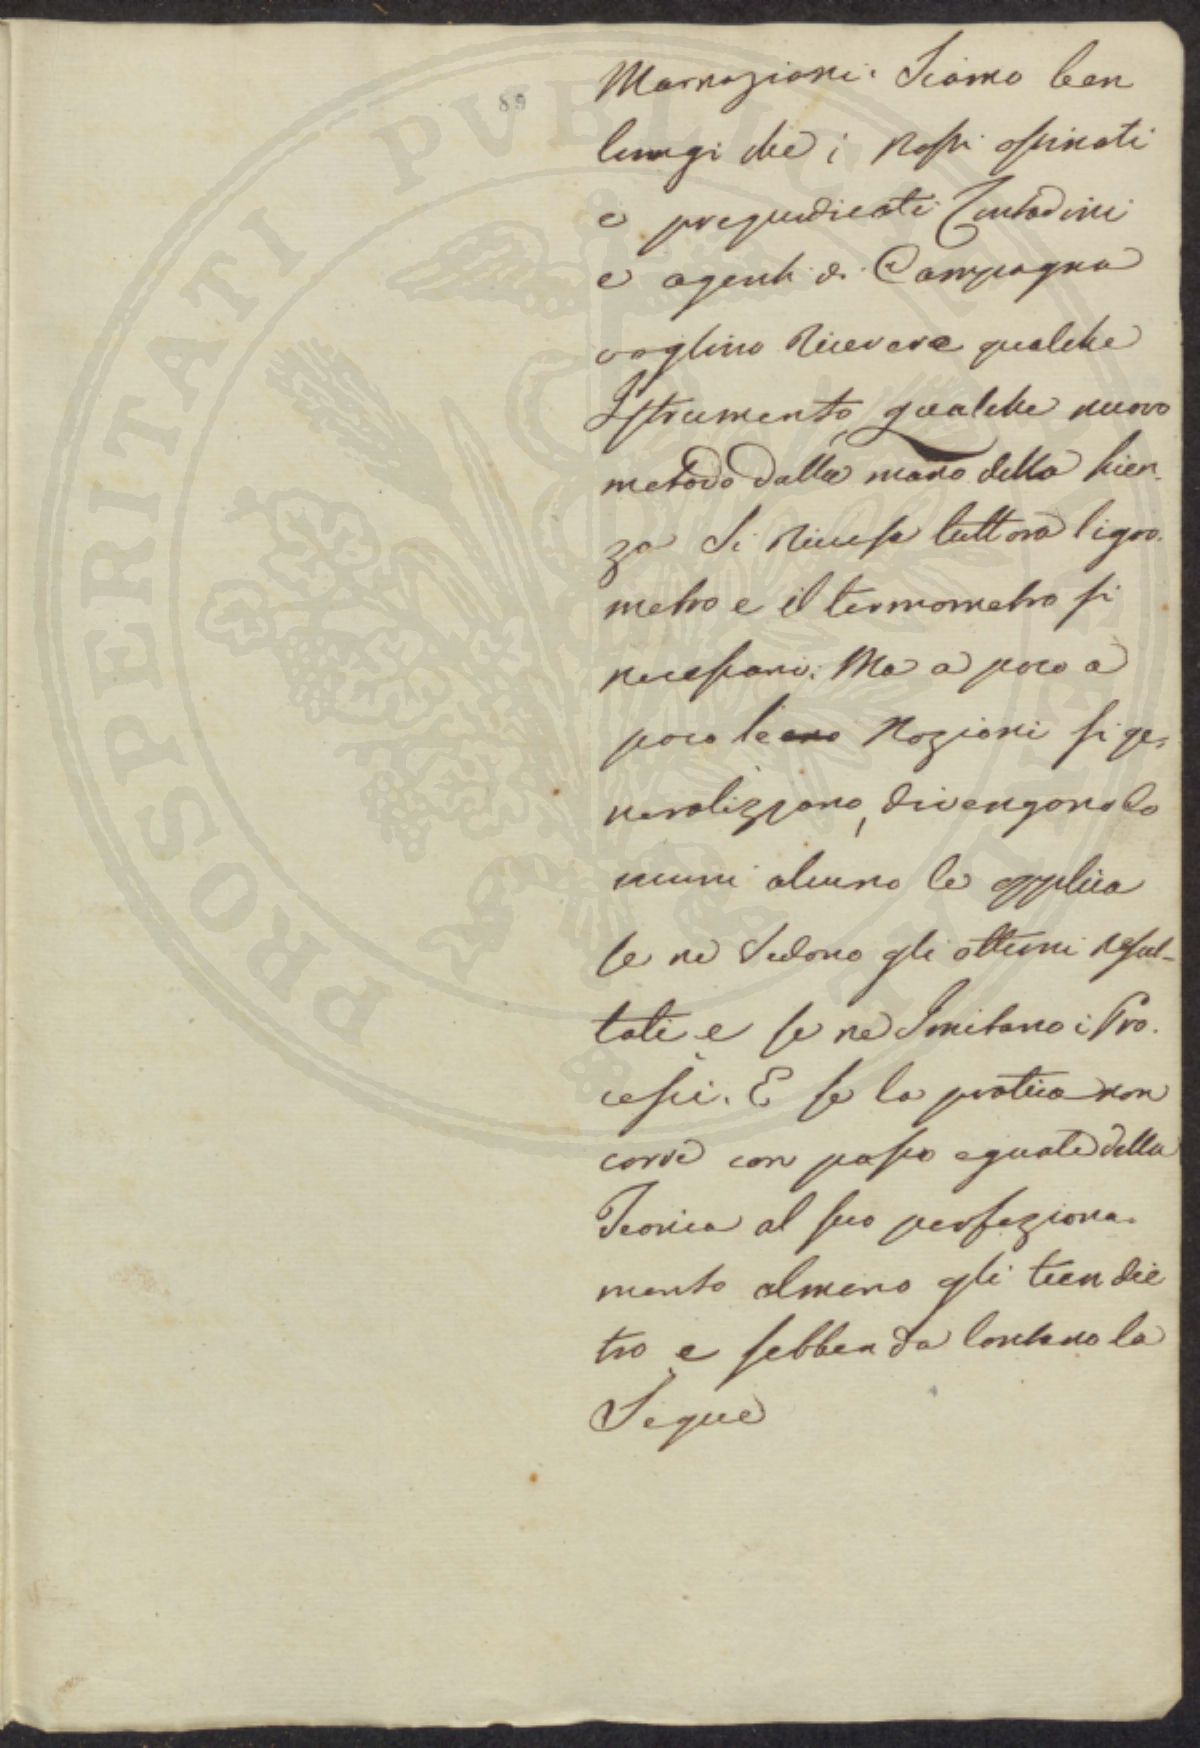 89
Marnazioni. Siamo ben
lungi che i rossi ostinati
e pregiudicati Contadini
e agenti di Campagna
voglino ricevere qualche
Istrumento, qualche nuovo
metodo dalla mano della scien-
za Si ricusa tuttora l'igro-
metro e il termometro si
necessari. Ma a poco a
poco le nozioni si ge-
neralizzano, divengono co
muni alcuno le applica
se ne vedono gli ottimi resul-
tati e se ne Imitano i Pro-
cessi. E se la pratica non
corre con passo eguale della
Teorica al suo perfeziona-
mento almeno gli tien die
tro e sebben da lontano la
Segue
PROSPERITATI PVBLICAE